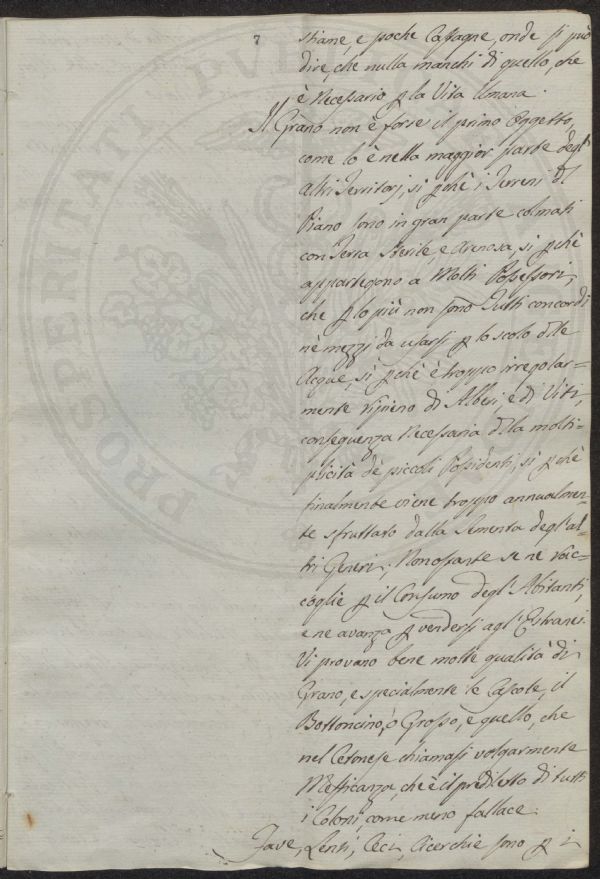 7
stiame, e poche Castagne, onde si può
dire, che nulla manchi di quello, che
è Necessario p la Vita Umana.
Il Grano non è forse il primo Oggetto,
come lo è nella maggior parte degl'
altri Territorj, sì pchè i Terreni del
Piano sono in gran parte colmati
con Terra sterile, e Arenosa, sì pchè
appartegono a Molti Possessori,
che p lo più non sono Tutti concordi
nè mezzi da usarsi p lo scolo delle
Acque, sì pchè è troppo irregolar=
mente ripieno di Alberi, e di Viti,
conseguenza Necessaria della molti=
plicità de' piccoli Possidenti, sì pchè
finalmente viene troppo annualmen=
te sfruttato dalla Sementa degl'al=
tri Generi; Nonostante se ne rac=
coglie p il Consumo degl'Abitanti,
e ne avanza p vendersi agl'Estranei.
Vi provano bene molte qualità di
Grano, e specialmente le Cascole, il
Bottoncino, o Grosso, e quello, che
nel Cetonese chiamasi volgarmente
Mesticanza, che è il prediletto di tutti
i Coloni, come meno fallace.
Fave, Lenti, Ceci, Cicerchie sono p i
PROSPERITATI PVB